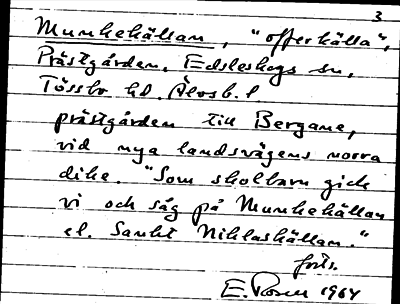 3
Munkekällan, "offerkälla",
Prästgården, Edsleskogs sn,
Tössbo hd.
prästgården till Bergane,
vid nya landsvägens norra
dike. "Som skolbarn gick
vi och såg på Munkekällan
el. Sankt Niklaskällan."
forts.
E. 1964